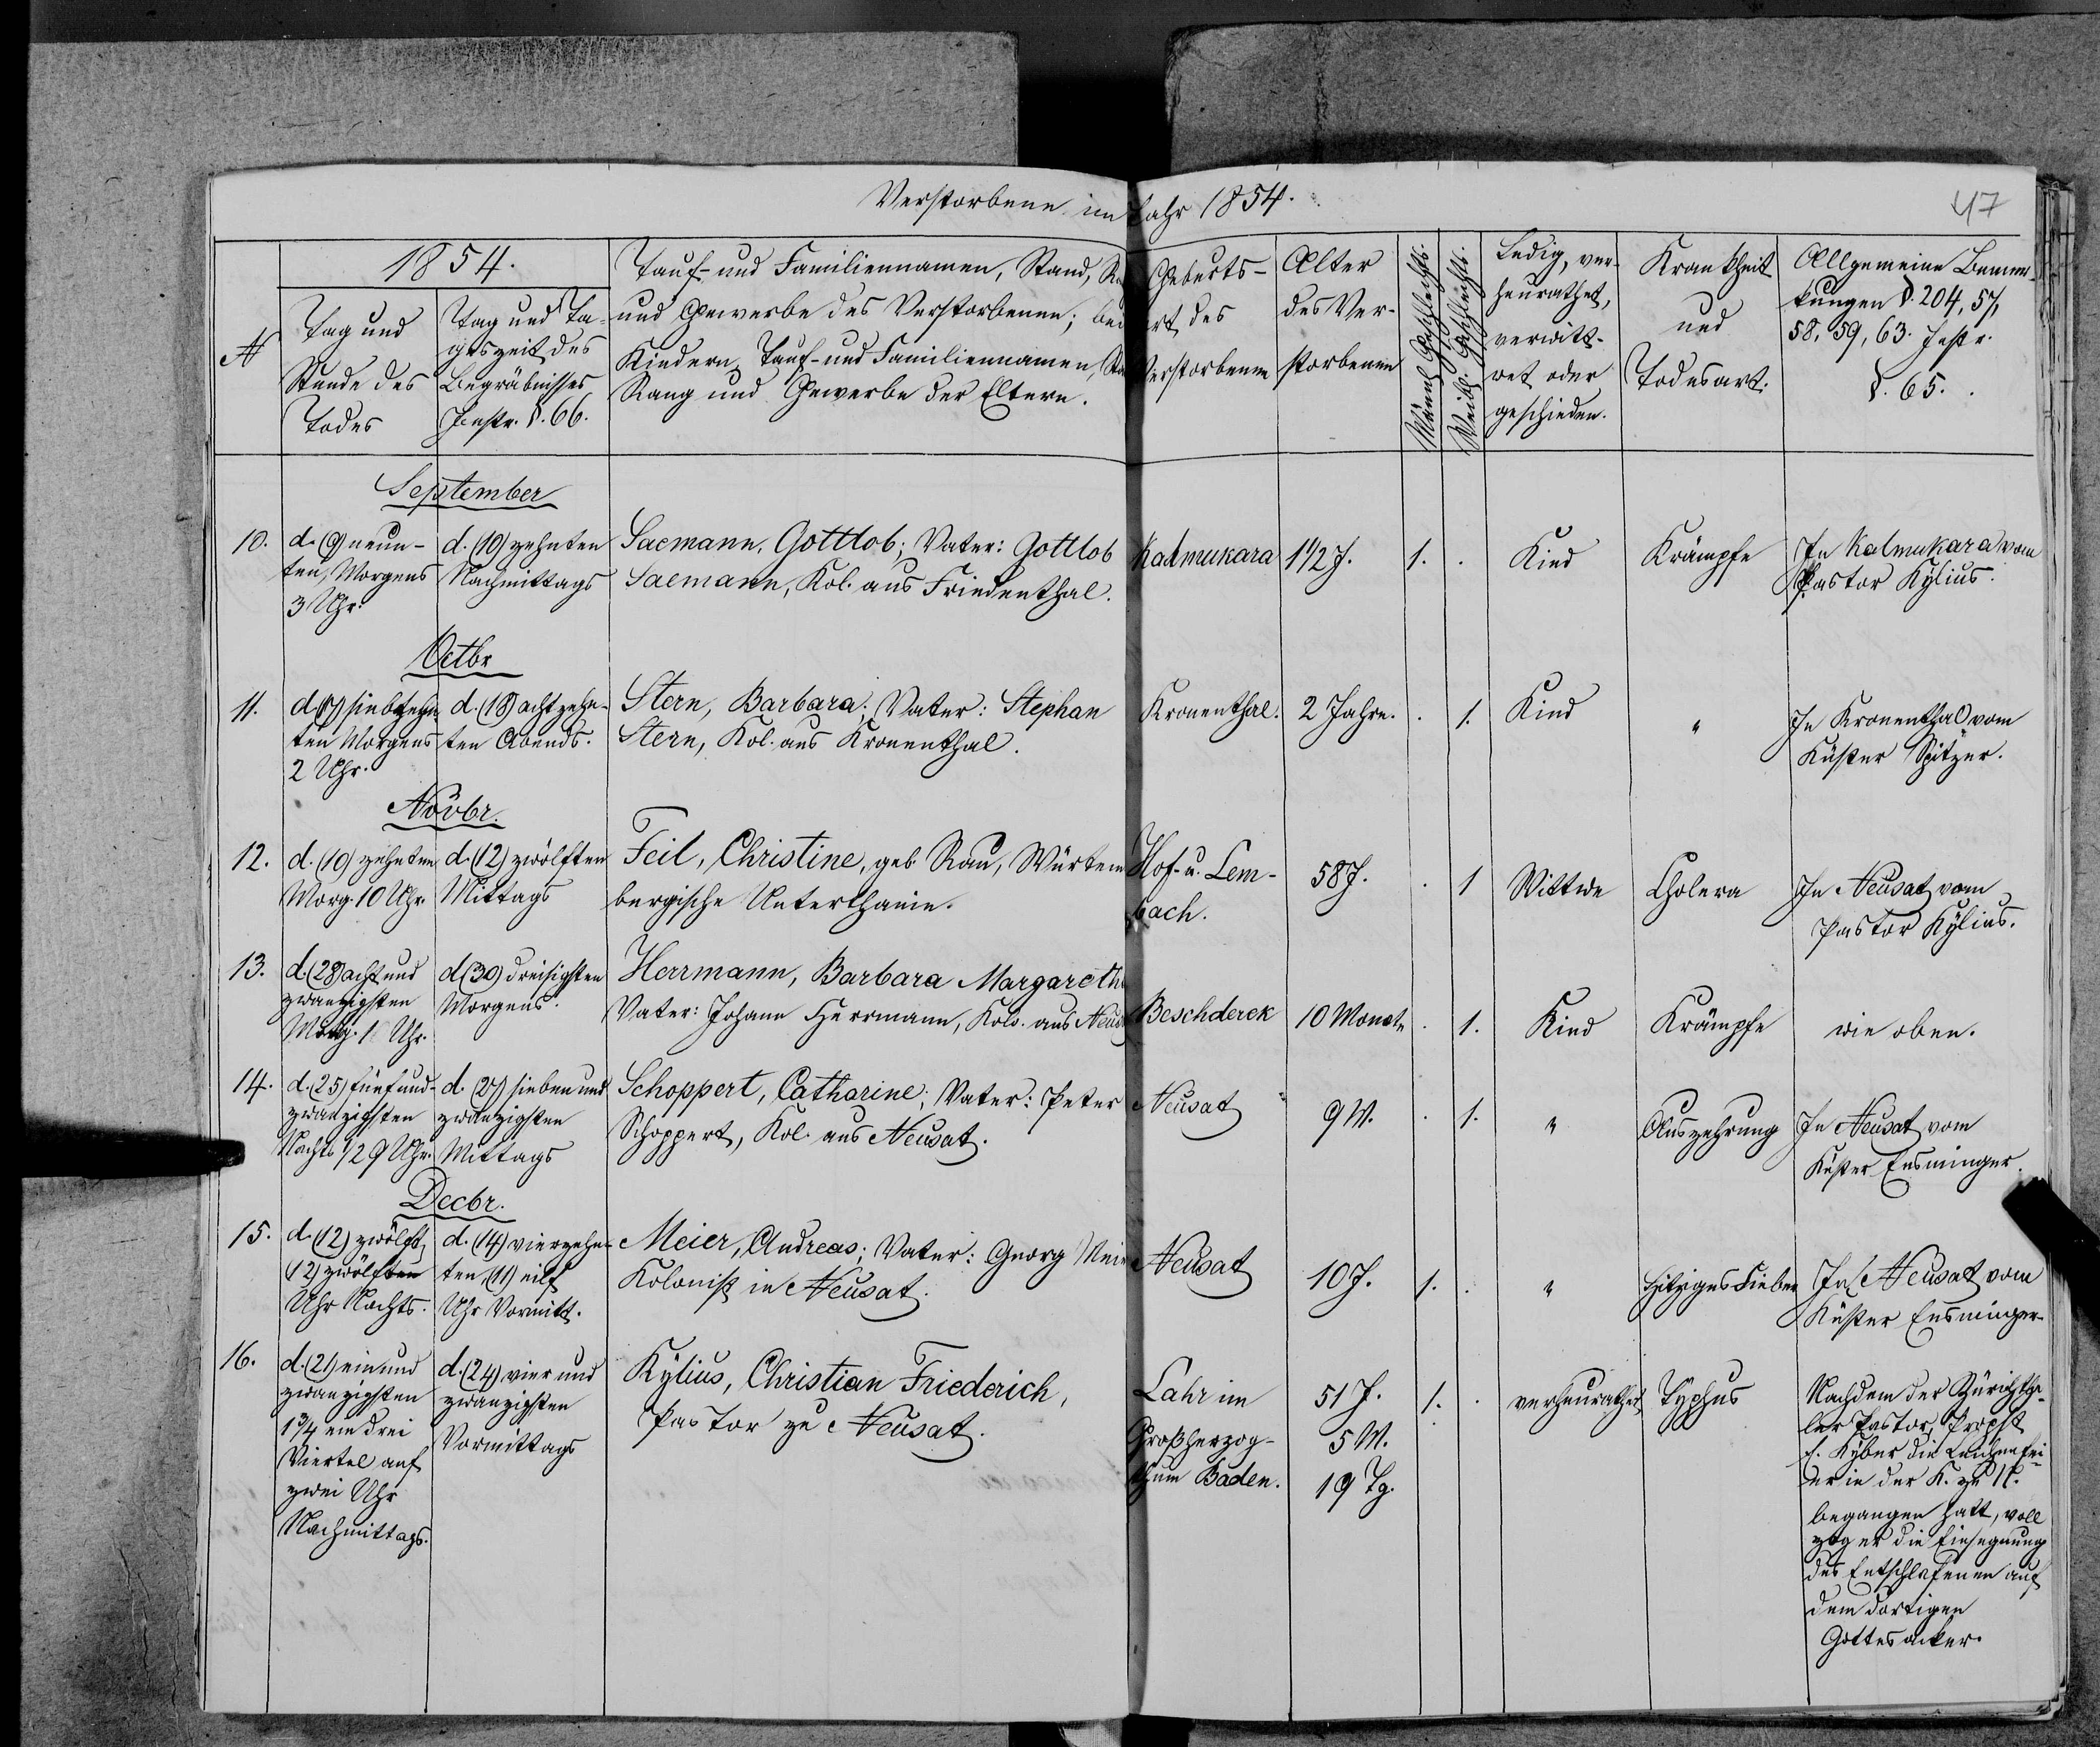 Verstorbene im Jahr 1854.
47
№
1854.
Tag und
Stunde des
Todes
Tag und Ta-
geszeit des
Begräbnisses
Instr. §. 66.
Tauf- und Familiennamen, Stand,
und Gewerbe des Verstorbenen; bei
Kindern, Tauf- und Familiennamen,
Rang und Gewerbe der Eltern.
Geburts-
ort des
Verstorbenen
Alter
des Ver-
storbenen
Männl. Geschlechts.
Weibl. Geschlechts.
Ledig, ver-
heurathet,
verwitt-
wet oder
geschieden.
Krankheit
und
Todesart.
Allgemeine Bemer-
kungen §. 204, 57,
58, 59, 63. Instr.
§. 65.
September
10.
d. (9) neun-
ten, Morgens
3 Uhr.
d. (10) zehnten
Nachmittags
Saemann, Gottlob; Vater: Gottlob
Saemann, Kol. aus Friedenthal.
Kalmukara
1 1/2 J.
1.
Kind
Krämpfe
In Kalmukara vom
Pastor Kÿlius.
Octbr
11.
d. (17) siebzehn
ten Morgens
2 Uhr.
d. (18) achtzehn-
ten Abends.
Stern, Barbara; Vater: Stephan
Stern, Kol. aus Kronenthal.
Kronenthal.
2 Jahre.
1.
Kind
"
In Kronenthal vom
Küster Spitzer.
Novbr.
12.
d. (10) zehnten
Morg. 10 Uhr
d. (12) zwölften
Mittags
Feil, Christine, geb. Rau, Würtem
bergische Unterthanin.
Hof- u. Lem-
bach.
58 J.
1
Wittwe
Cholera
In Neusatz vom
Pastor Kÿlius.
13.
d. (28) acht und
zwanzigsten
Uhr.
d. (30) dreisigsten
Morgens.
Herrmann, Barbara Margareth
Vater: Johann Herrmann, Kolo. aus
Beschderek
10 Monate
1.
Kind
Krämpfe
wie oben.
14.
d. (25) fünf und-
zwanzigsten
Nachts 1/2 9 Uhr.
d. (27) sieben und
zwanzigsten
Mittags
Schoppert, Catharine; Vater: Peter
Schoppert, Kol. aus Neusatz.
Neusatz
9 M.
1.
"
Auszehrung
In Neusatz vom
Küster Ensminger.
Decbr.
15.
d. (12) zwölft,
(12) zwölften
Uhr Nachts.
d. (14) vierzehn-
ten, (11) eilf
Uhr Vormitt.
Meier, Andreas; Vater: Georg Meier
Kolonist in Neusatz.
Neusatz
10 J.
1.
"
hitziges Fieber
In Neusatz vom
Küster Ensminger.
16.
d. (21) ein und
zwanzigsten
1 3/4 ein drei
Viertel auf
zwei Uhr
Nachmittags.
d. (24) vier und
zwanzigsten
Vormittags
Kÿlius, Christian Friederich,
Pastor zu Neusatz.
Lahr im
Großherzog-
thum Baden.
51 J.
5 M.
19 Tg.
1.
verheurathet
Typhus
Nachdem der Zürichtha-
ler Pastor, Propst
Kÿber die Leichenfei-
er in der K. zu N.
begangen hatt, voll
zog er die Einsegnung
des Entschlafenen auf
dem dortigen
Gottesacker.